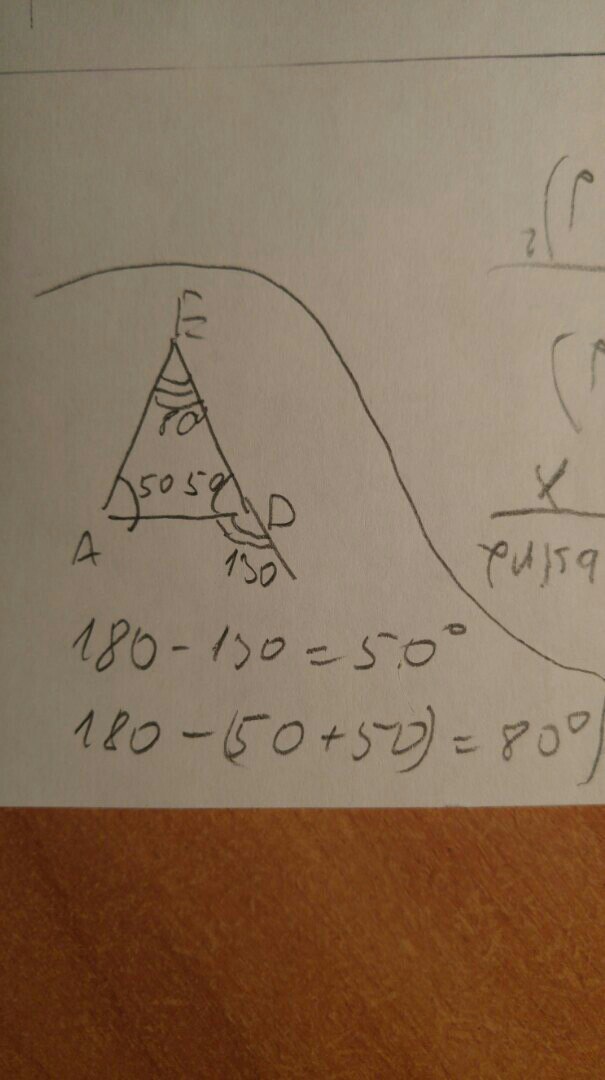 E
80
50 50
A
D
130
180 - 130 = 50°
180 - (50 + 50) = 80°